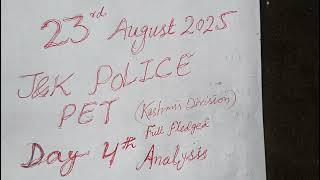 23rd August 2025
J&K POLICE
PET (Kashmir Division)
Full Fledged
Day 4th Analysis